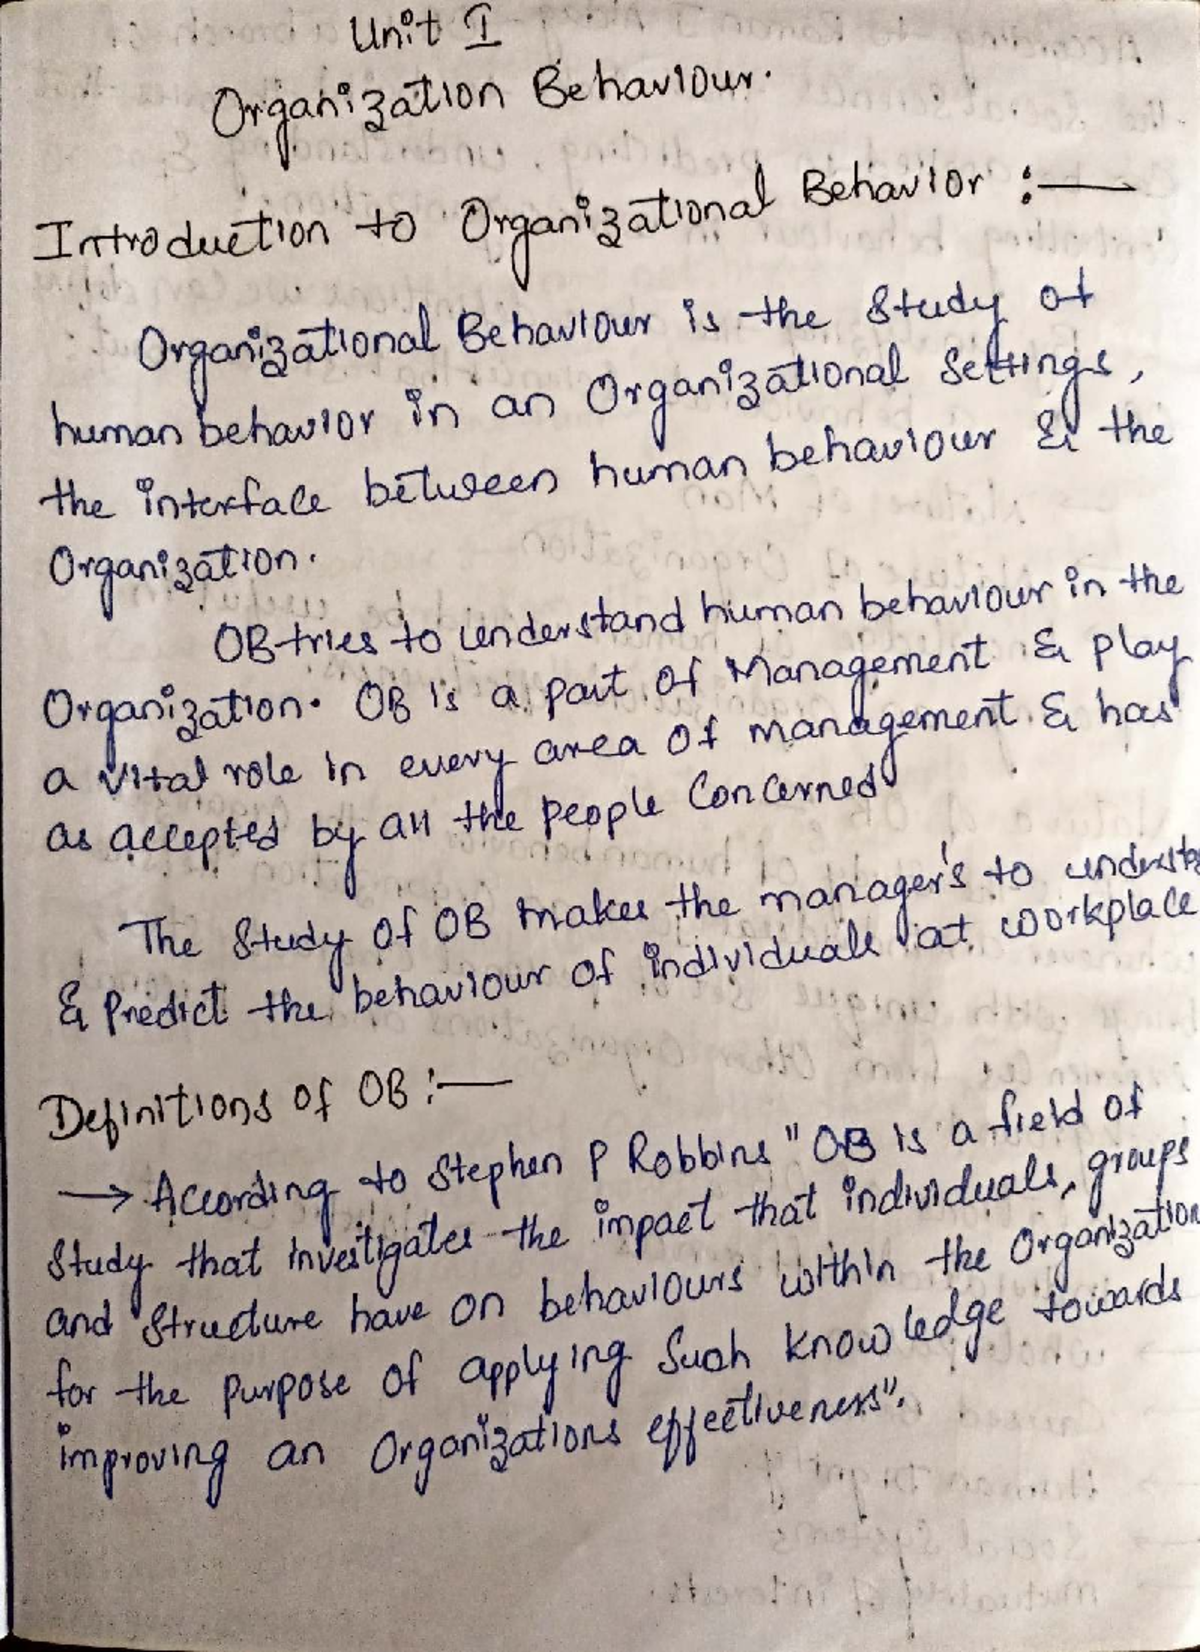 Unit I
Organization Behaviour.
Introduction to Organizational Behavior :—
Organizational Behaviour is the study of
human behavior in an Organizational Settings,
the interface between human behaviour & the
Organization.
OB tries to understand human behaviour in the
Organization. OB is a part of Management & play
a vital role in every area of management & has
as accepted by all the people Concerned
The Study of OB makes the manager's to understa
& Predict the behaviour of individuals at workplace
Definitions of OB :—
→ According to Stephen P Robbins "OB is a field of
Study that investigates the impact that individuals, groups
and Structure have on behaviours within the Organization
for the purpose of applying Such knowledge towards
improving an Organizations effectiveness".